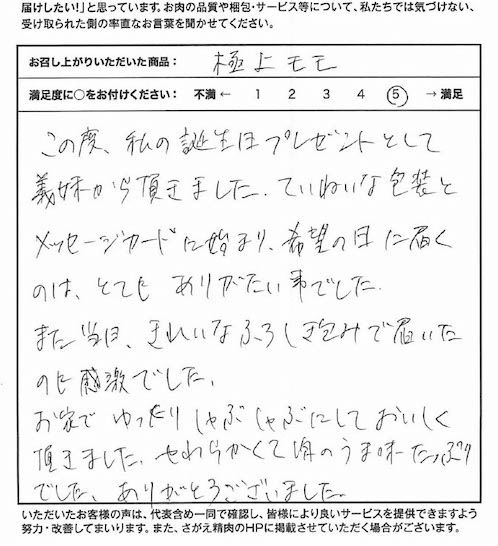 届けしたい!」と思っています。お肉の品質や梱包・サービス等について、私たちでは気づけない、
受け取られた側の率直なお言葉を聞かせてください。
お召し上がりいただいた商品: 極上モモ
満足度に○をお付けください: 不満 ← 1 2 3 4 5 → 満足
この度、私の誕生日プレゼントとして
義妹から頂きました。ていねいな包装と
メッセージカードに始まり、希望の日に届く
のは、とても ありがたい事でした。
また当日、きれいなふろしき包みで届いた
のに感激でした。
お家で ゆったりしゃぶしゃぶにしておいしく
頂きました。やわらかくて肉のうま味たっぷり
でした。ありがとうございました。
いただいたお客様の声は、代表含め一同で確認し、皆様により良いサービスを提供できますよう
努力・改善してまいります。また、さがえ精肉のHPに掲載させていただく場合がございます。